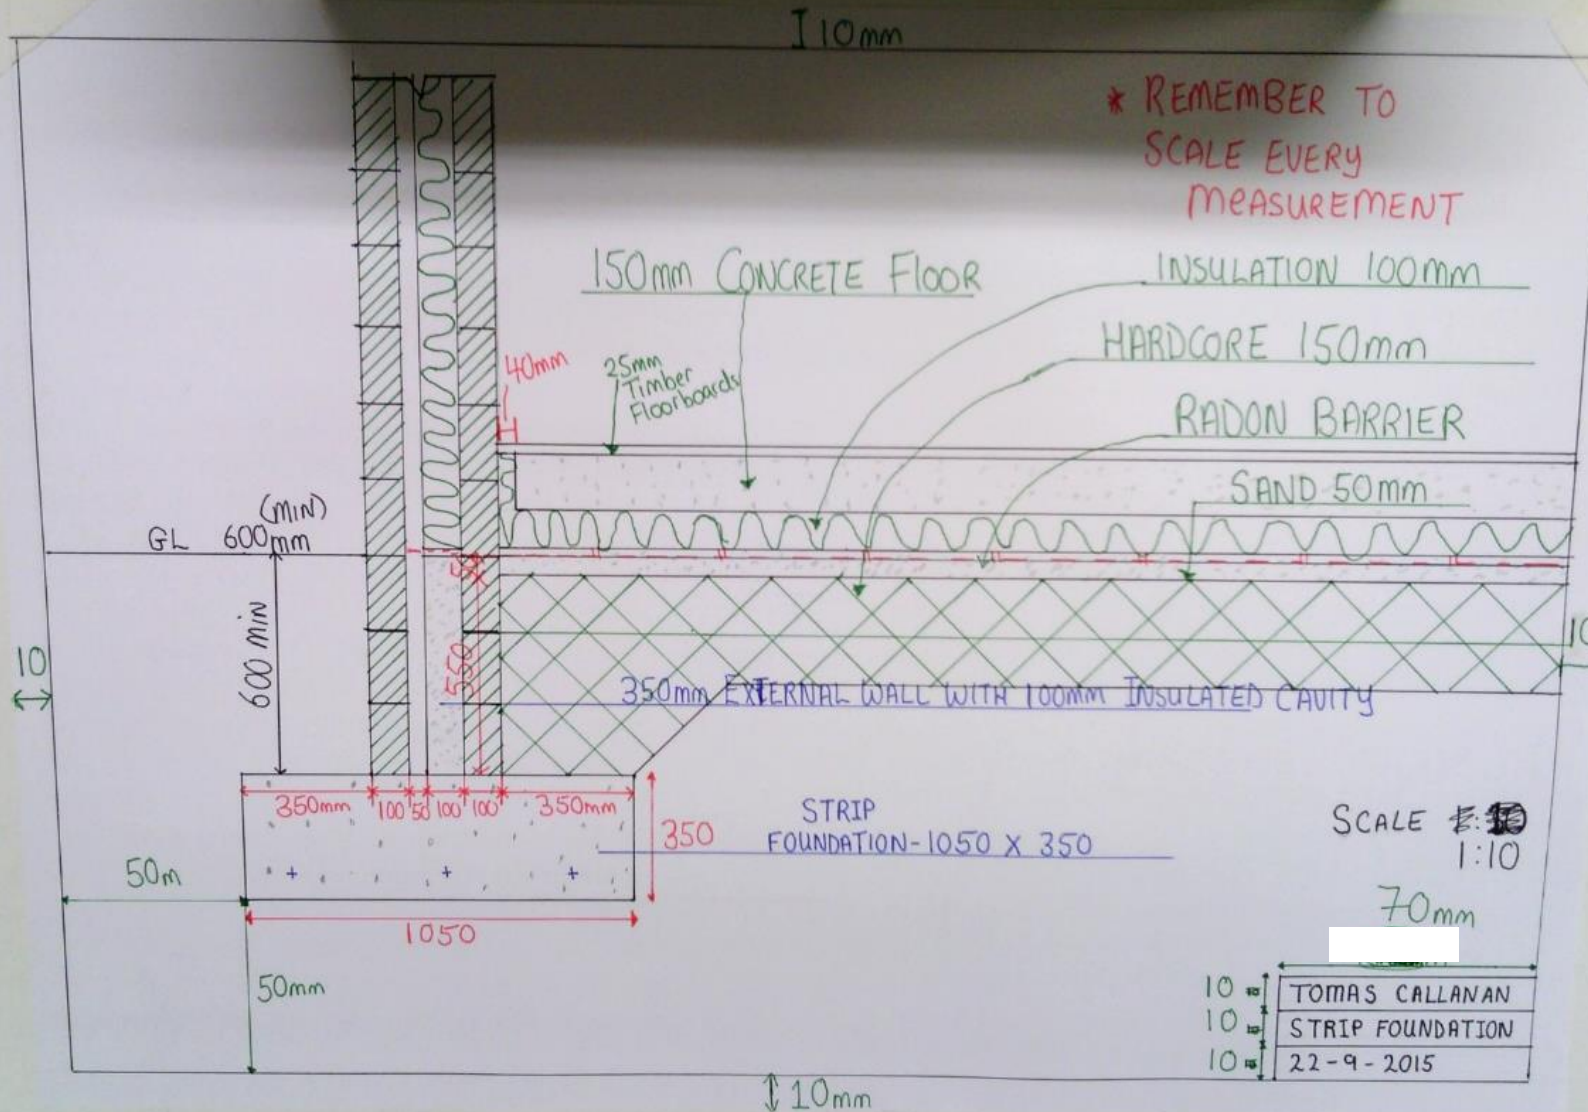 10mm
* REMEMBER TO
SCALE EVERY
MEASUREMENT
150mm CONCRETE FLOOR
INSULATION 100mm
HARDCORE 150mm
RADON BARRIER
SAND 50mm
40mm
25mm
Timber
Floorboards
(MIN)
GL 600mm
600 MIN
50
550
10
10
350mm EXTERNAL WALL WITH 100mm INSULATED CAVITY
350mm 100 50 100 100 350mm
350
STRIP
FOUNDATION-1050 X 350
SCALE
1:10
50m
1050
50mm
70mm
10 TOMAS CALLANAN
10 STRIP FOUNDATION
10 22-9-2015
10mm